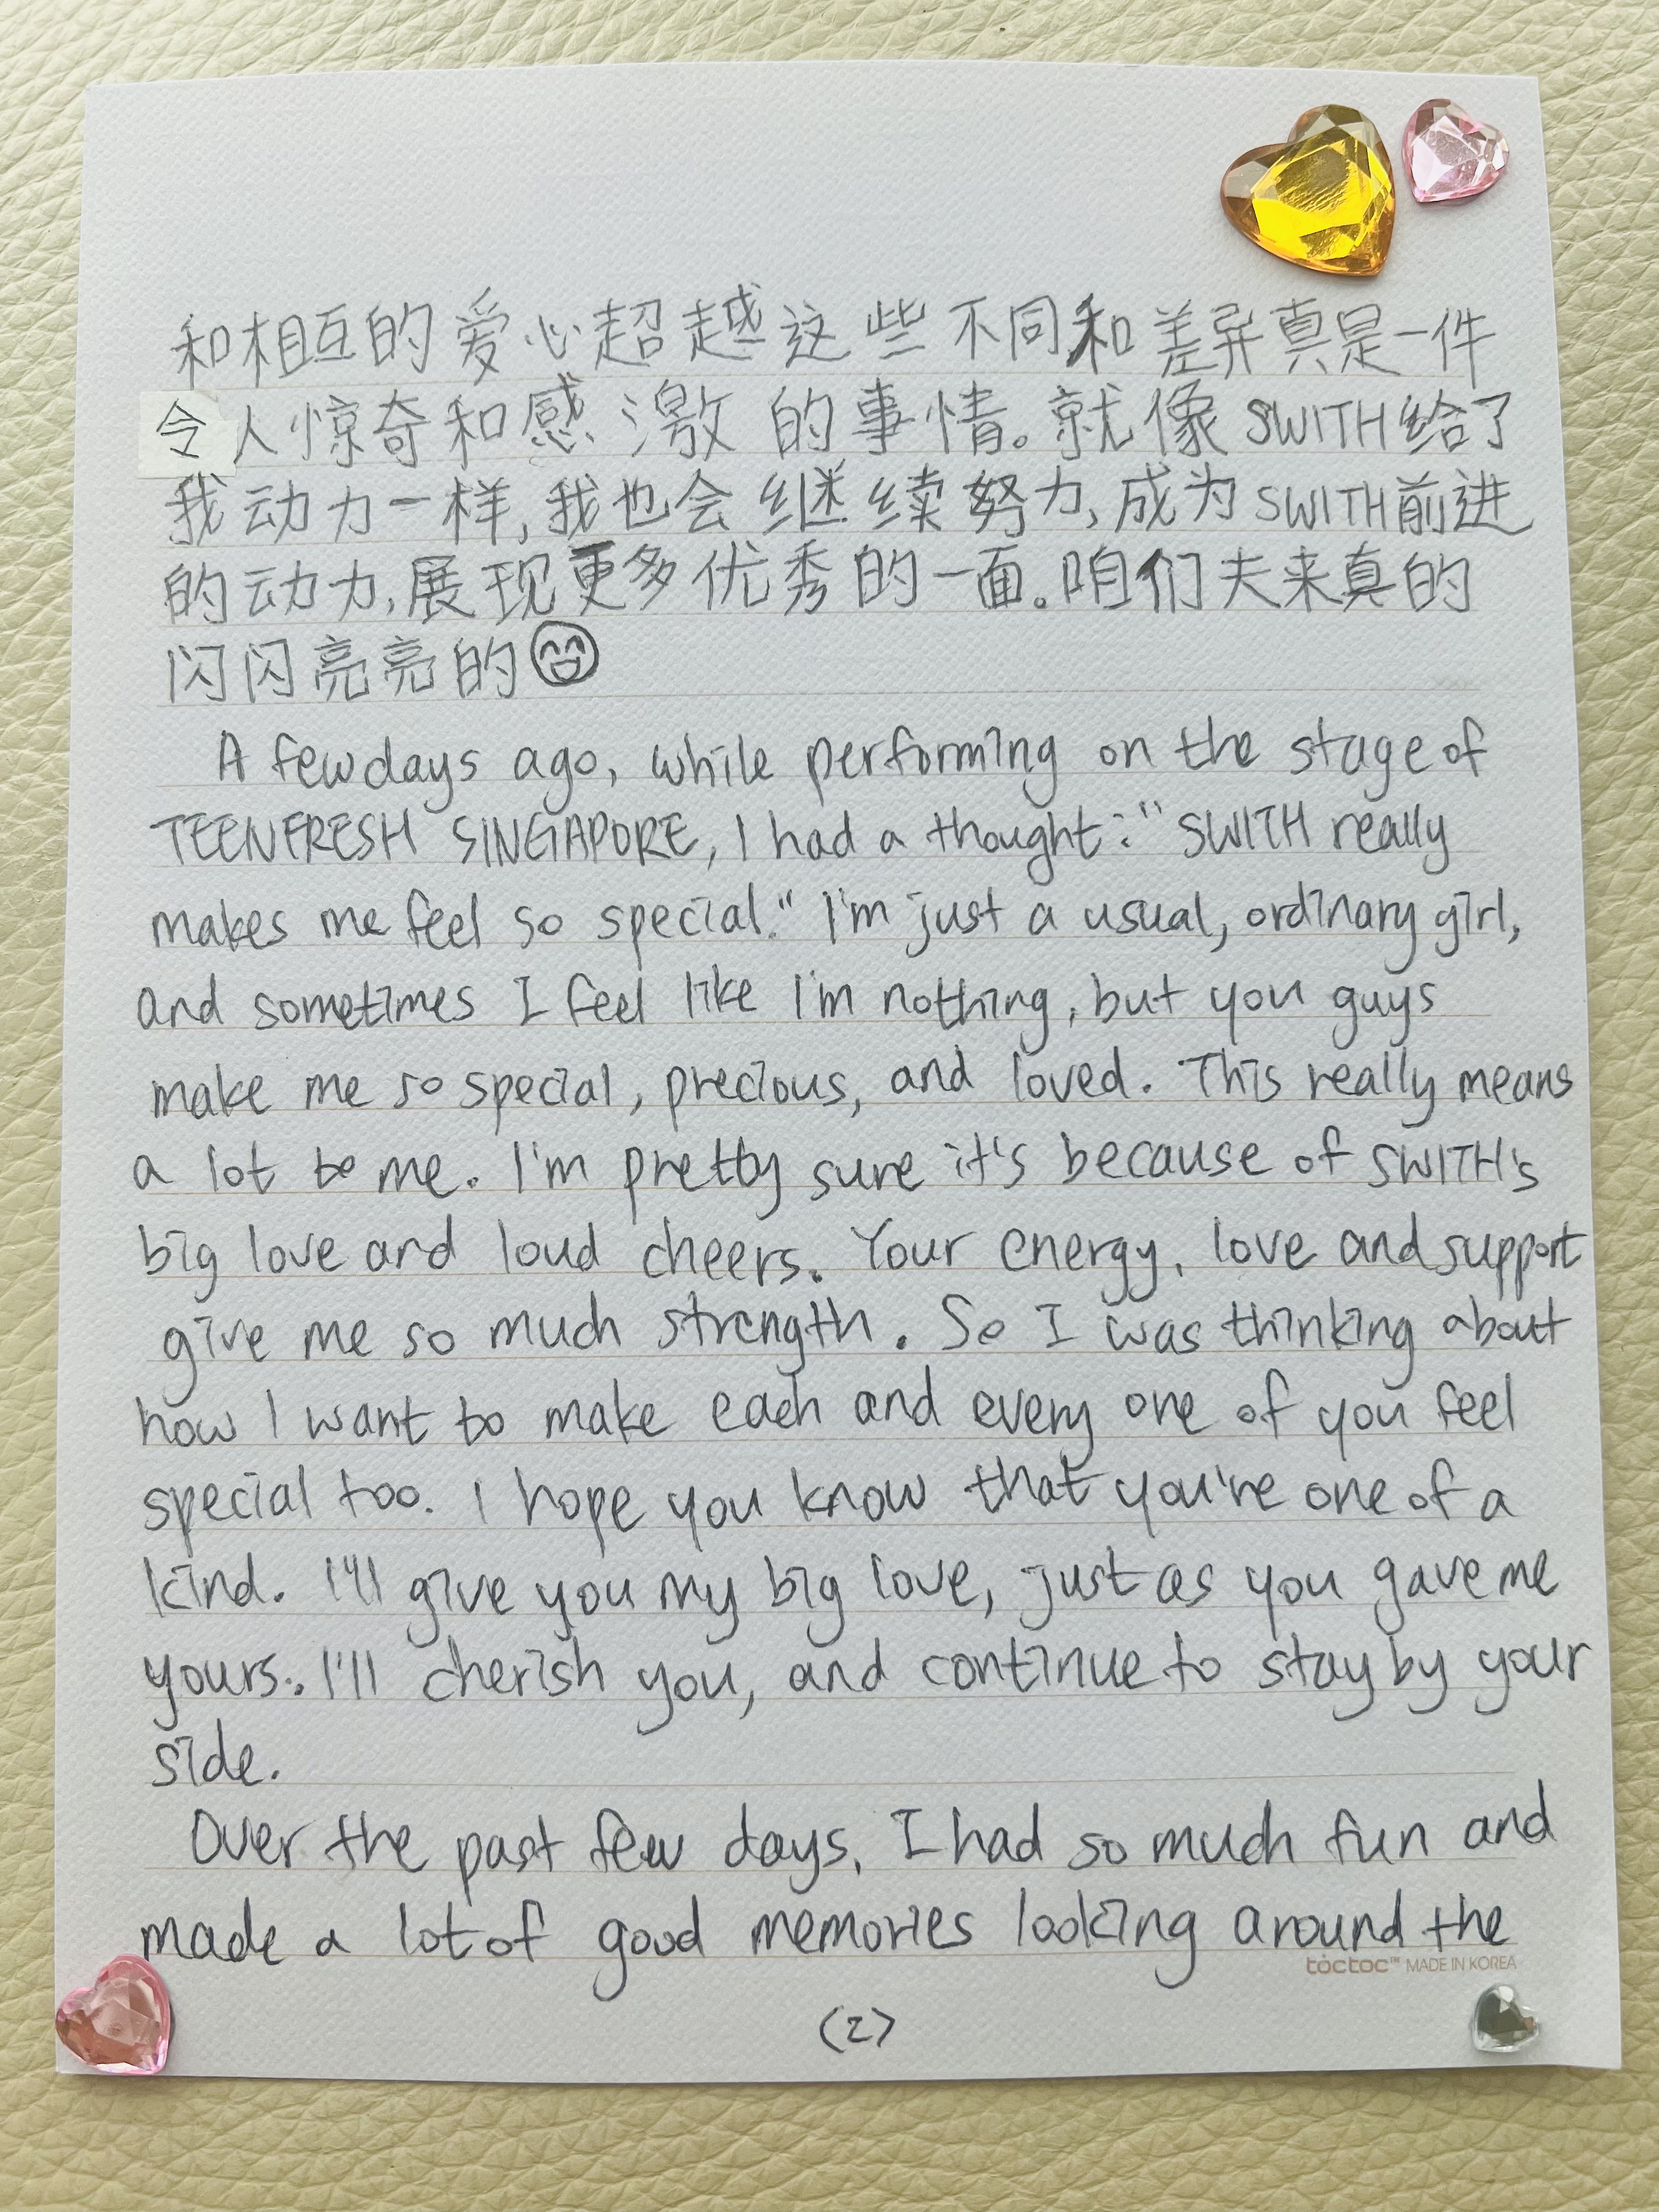 和相互的爱心超越这些不同和差异真是一件
令人惊奇和感激的事情。就像SWITH给了
我动力一样,我也会继续努力,成为SWITH前进
的动力,展现更多优秀的一面。咱们夫来真的
闪闪亮亮的
A few days ago, while performing on the stage of
TEENFRESH SINGAPORE, I had a thought: "SWITH really
makes me feel so special." I'm just a usual, ordinary girl,
and sometimes I feel like I'm nothing, but you guys
make me so special, precious, and loved. This really means
a lot to me. I'm pretty sure it's because of SWITH's
big love and loud cheers. Your energy, love and support
give me so much strength. So I was thinking about
how I want to make each and every one of you feel
special too. I hope you know that you're one of a
kind. I'll give you my big love, just as you gave me
yours. I'll cherish you, and continue to stay by your
side.
Over the past few days, I had so much fun and
made a lot of good memories looking around the
toctoc™ MADE IN KOREA
(2)